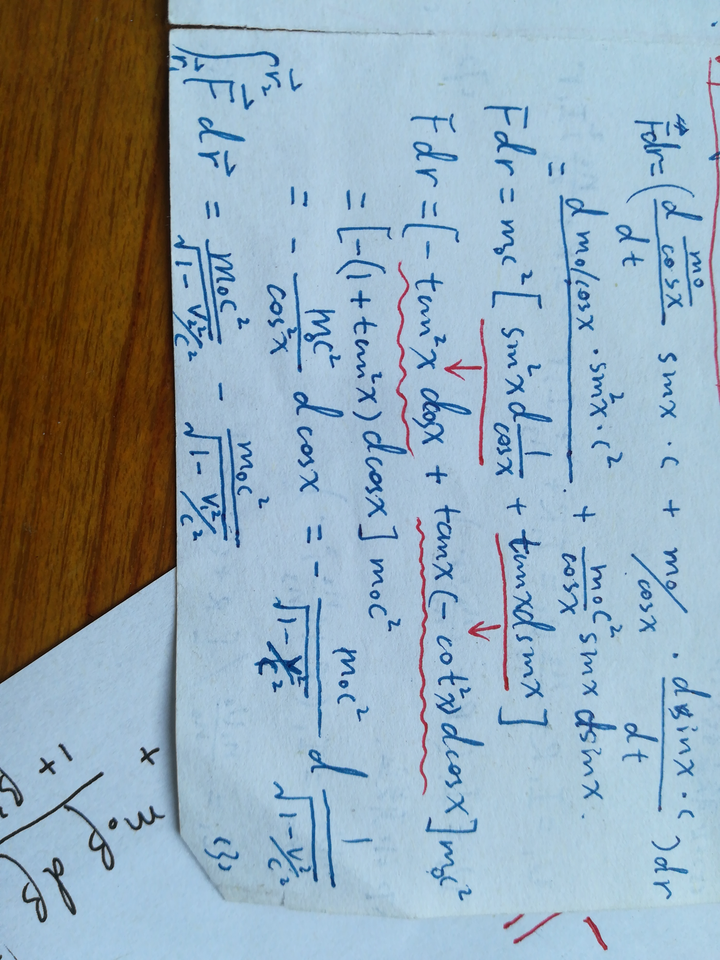 F⃗dr = (d m₀/cosx / dt sinx · c + m₀/cosx · d sinx · c / dt) dr
= d m₀/cosx · sin²x · c² + m₀c²/cosx sinx dsinx.
F̄dr = m₀c² [ sin²x d 1/cosx + tanx dsinx ]
F̄dr = [ - tan²x dcosx + tanx (- cot²x) dcosx ] m₀c²
= [ - (1 + tan²x) dcosx ] m₀c²
= - m₀c²/cos²x dcosx = - m₀c²/√(1 - v²/c²) d 1/√(1 - v²/c²)
∫r⃗₁^r⃗₂ F⃗ dr⃗ = m₀c²/√(1 - v₂²/c²) - m₀c²/√(1 - v₁²/c²)
+ m₀β dβ
1 +